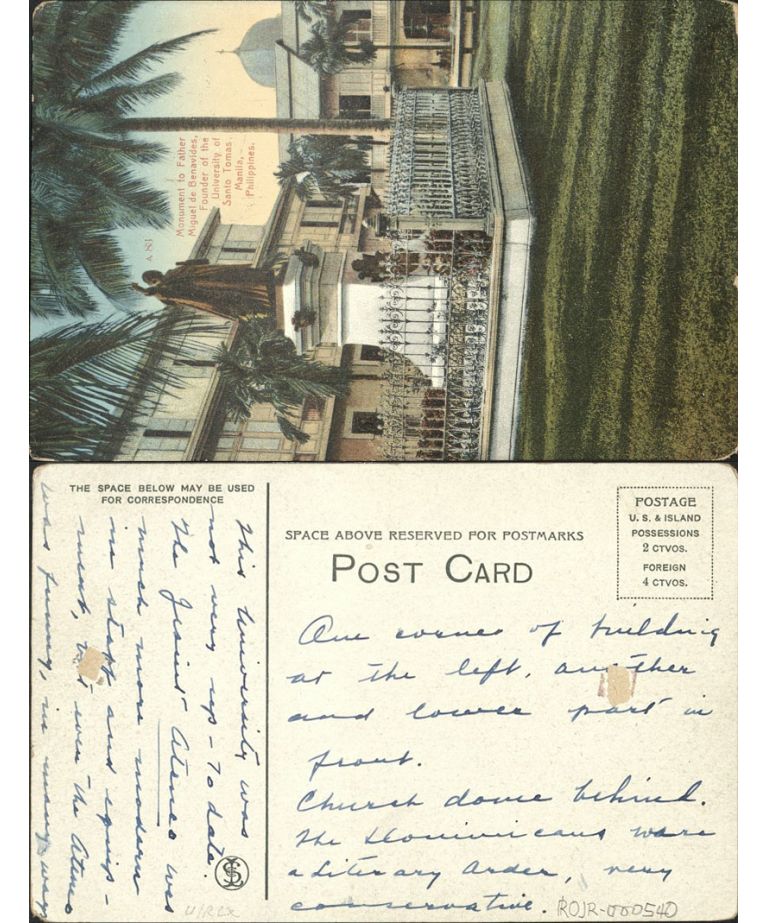 Monument to Father
Miguel de Benavides,
Founder of the
University of
Santo Tomas.
Manila,
Philippines.
THE SPACE BELOW MAY BE USED
FOR CORRESPONDENCE
This University was
not very up-to date.
The Jesuit Ateneo was
much more modern
in staff and equip-
ment, but even the Ateneo
was funny, in many ways
SPACE ABOVE RESERVED FOR POSTMARKS
POST CARD
POSTAGE
U. S. & ISLAND
POSSESSIONS
2 CTVOS.
FOREIGN
4 CTVOS.
One corner of building
at the left, another
and lower part in
front.
Church dome behind.
The Dominicans were
a literary order, very
conservative.
ROJR-000540